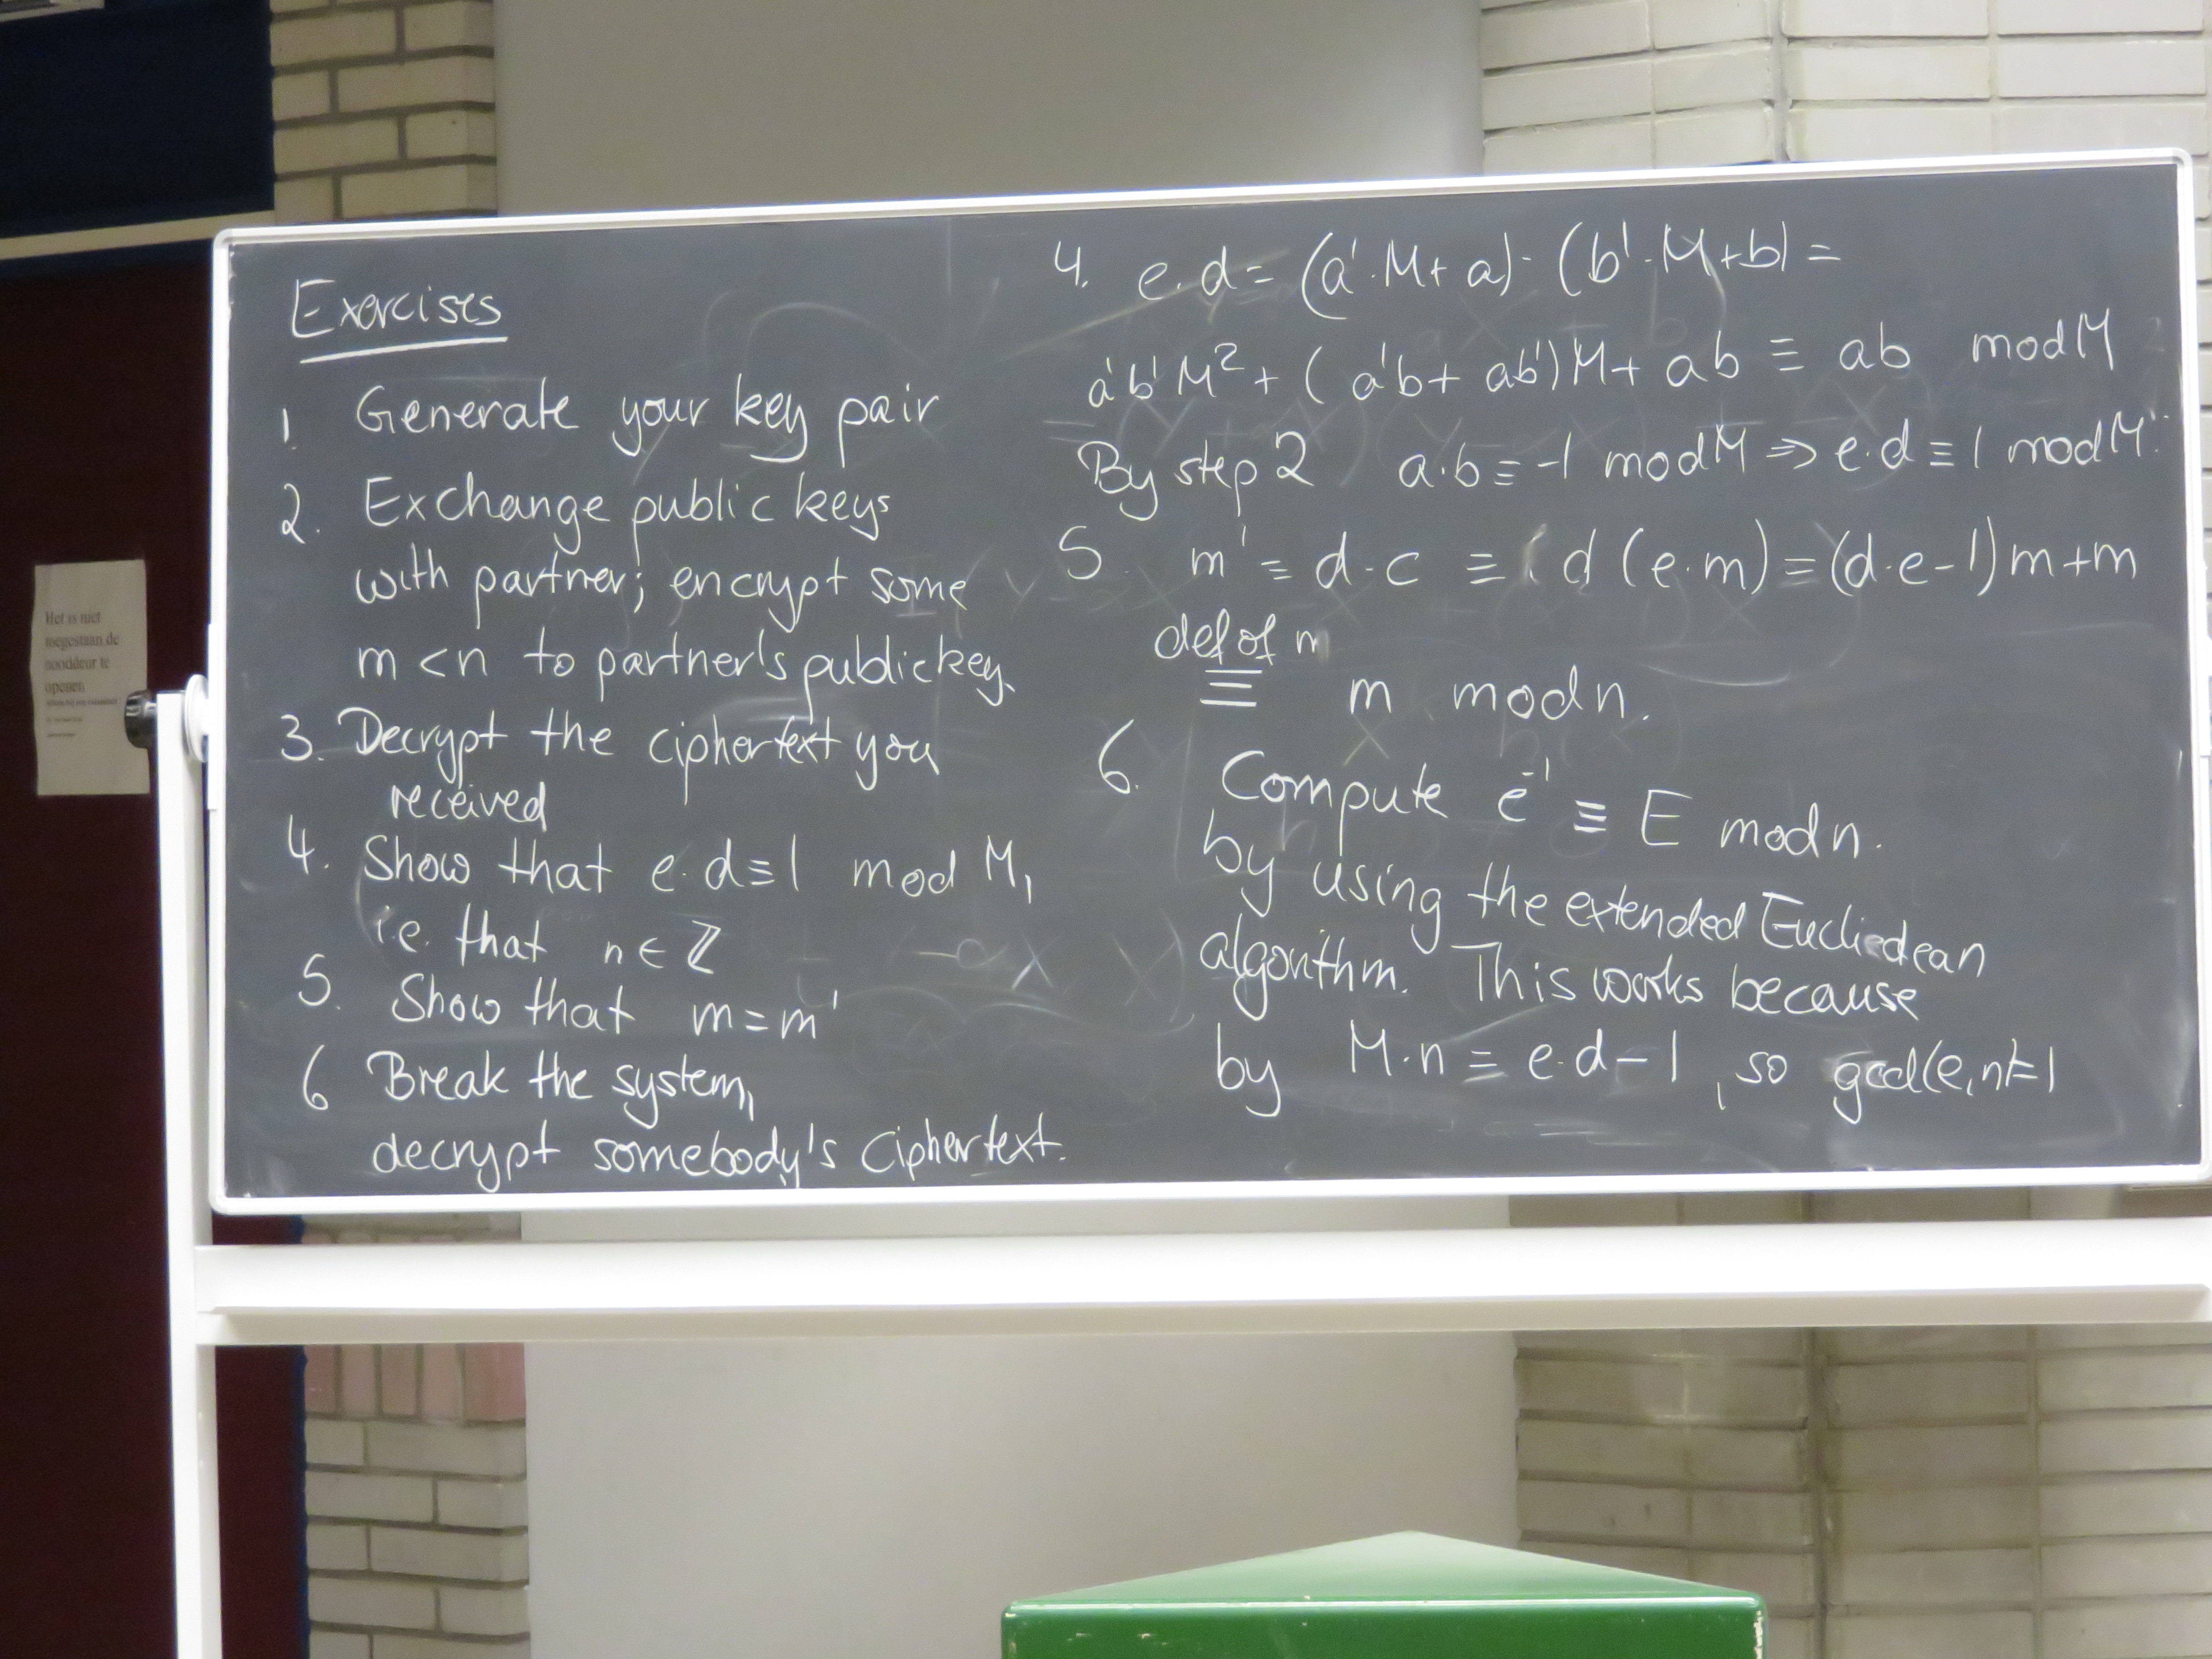 Exercises
1. Generate your key pair
2. Exchange public keys
with partner; encrypt some
m < n to partner's public key.
3. Decrypt the ciphertext you
received
4. Show that e·d ≡ 1 mod M,
i.e. that n ∈ ℤ
5. Show that m = m'
6 Break the system,
decrypt somebody's ciphertext.
4. e·d = (a'·M + a)·(b'·M + b) =
a'b'M² + (a'b + ab')M + ab ≡ ab mod M
By step 2 a·b ≡ -1 mod M ⇒ e·d ≡ 1 mod M.
5 m' = d·c ≡ d(e·m) = (d·e-1)m+m
def of n
≡ m mod n.
6. Compute e⁻¹ ≡ E mod n.
by using the extended Eucliedean
algorithm. This works because
by M·n = e·d-1, so gcd(e,n)=1
Het is niet
toegestaan de
nooddeur te
openen